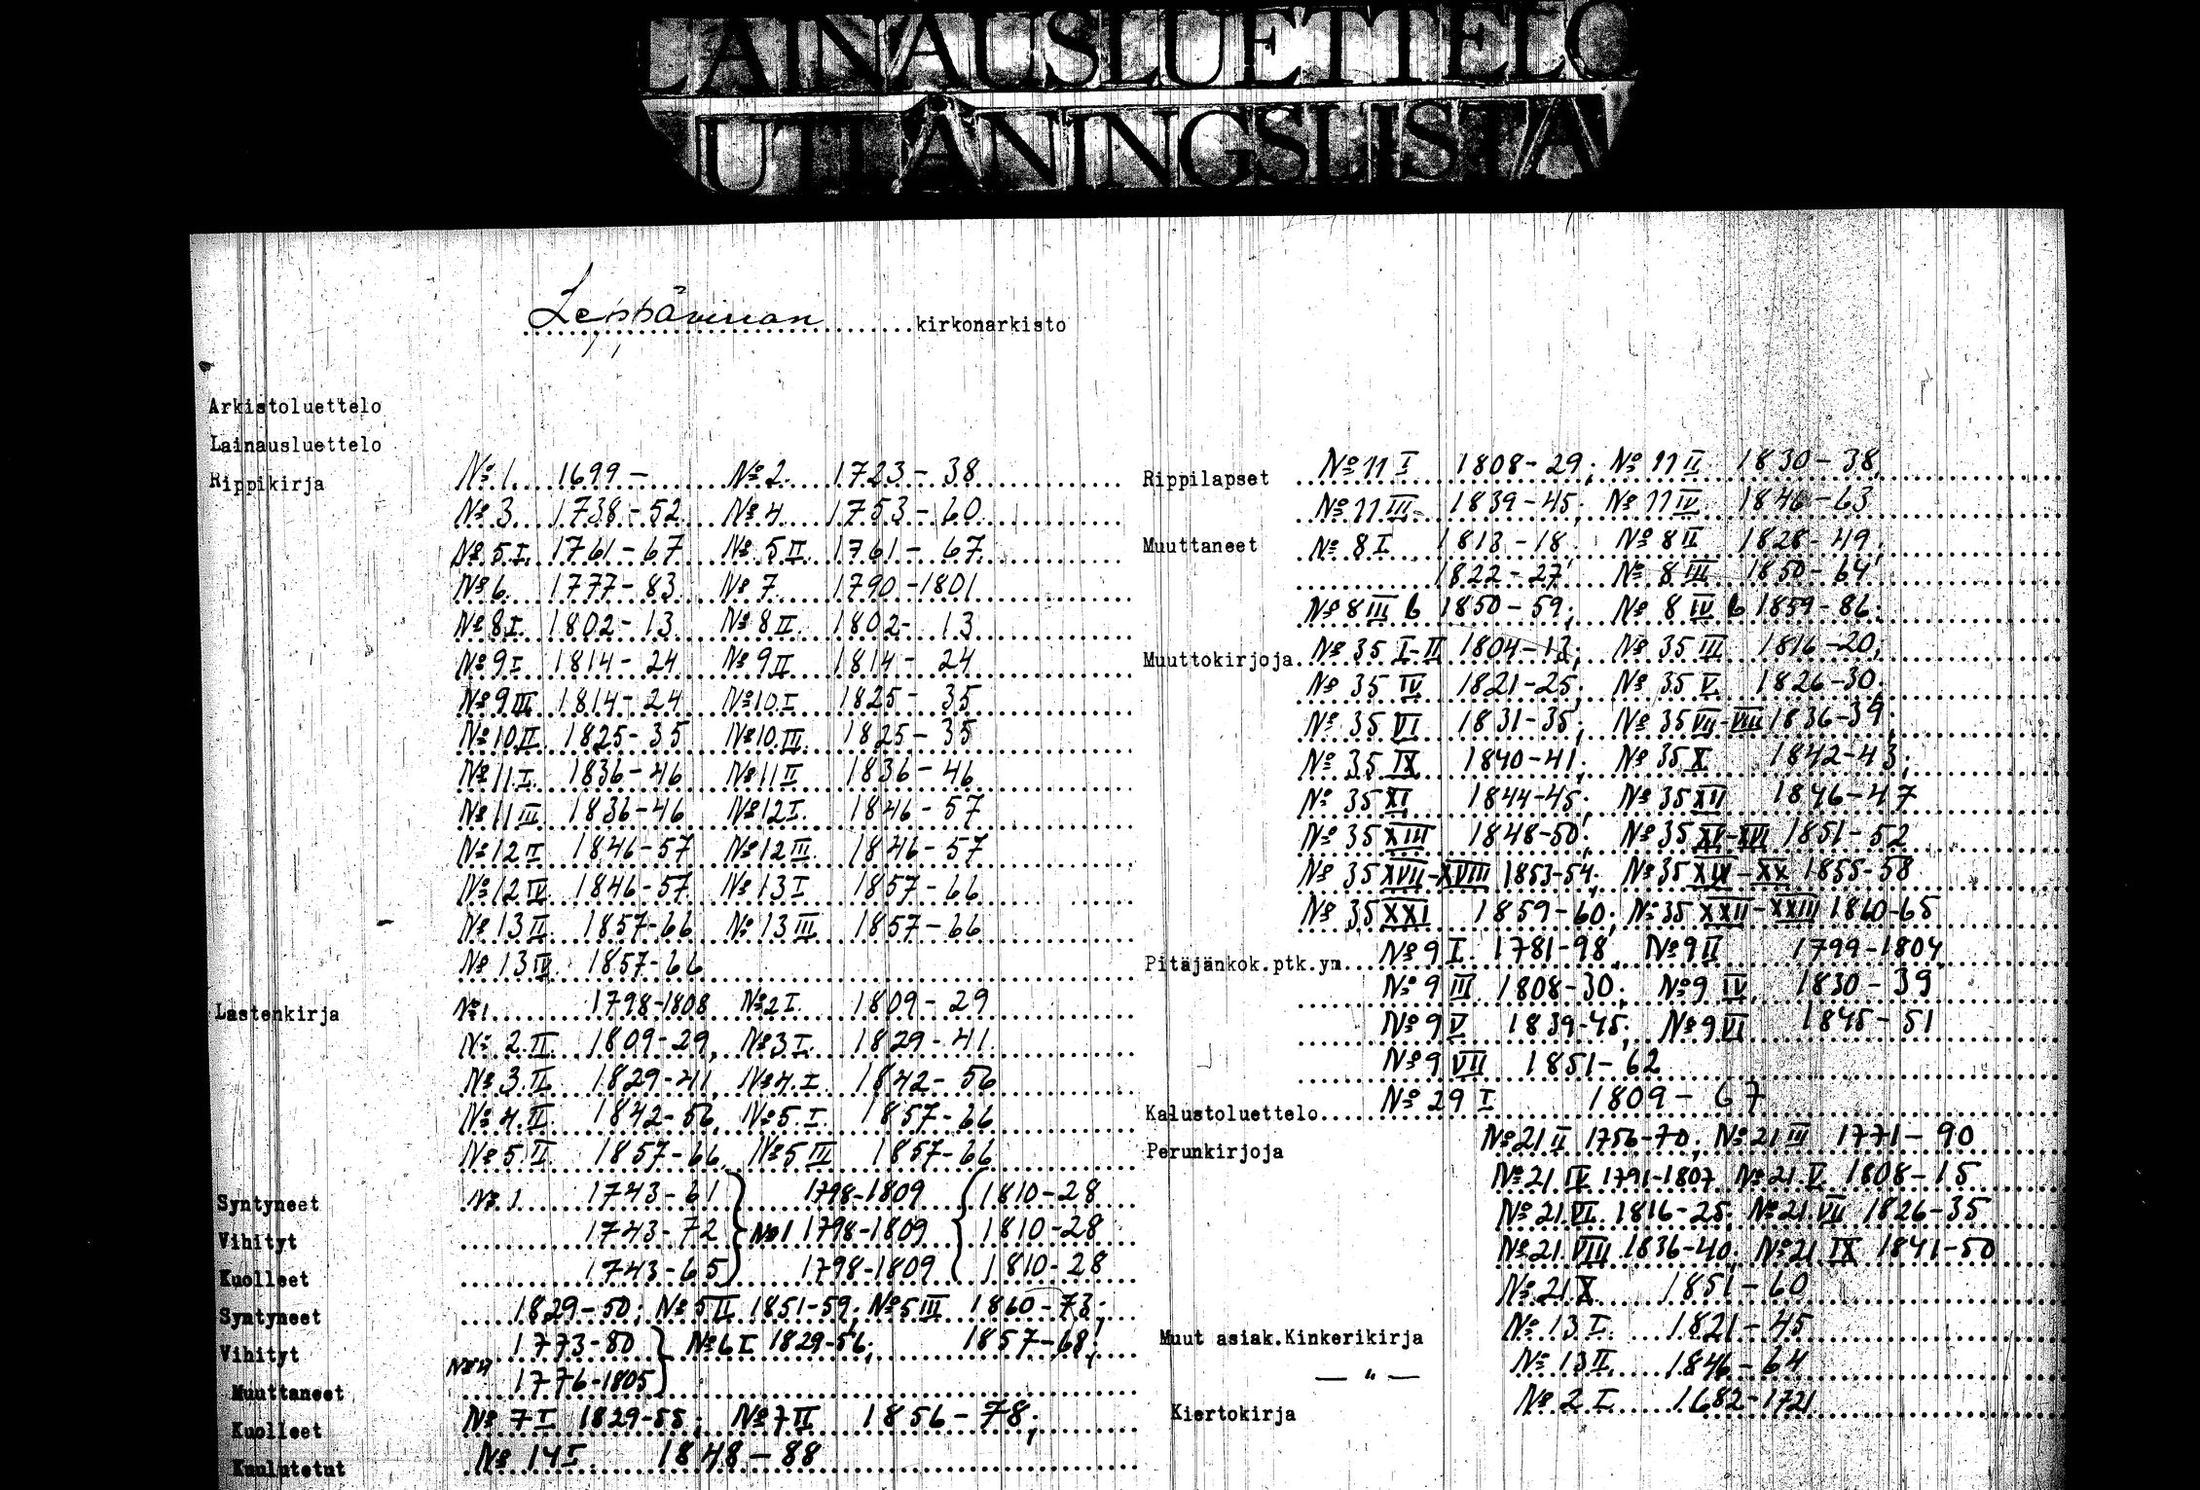 LAINAUSLUETTELO
UTLÅNINGSLISTA
Leppävirran kirkonarkisto
Arkistoluettelo
Lainausluettelo
Rippikirja № 1. 1699 - № 2. 1723 - 38
№ 3 1738 - 52 № 4 1753 - 60
№ 5 I. 1761 - 67 № 5 II. 1761 - 67.
№ 6 1777 - 83 № 7 1790 - 1801
№ 8 I. 1802 - 13 № 8 II. 1802 - 13
№ 9 I 1814 - 24 № 9 II 1814 - 24
№ 9 III 1814 - 24 № 10 I 1825 - 35
№ 10 II 1825 - 35 № 10 III 1825 - 35
№ 11 I. 1836 - 46 № 11 II 1836 - 46
№ 11 III 1836 - 46 № 12 I. 1846 - 57
№ 12 II 1846 - 57 № 12 III 1846 - 57
№ 12 IV 1846 - 57 № 13 I 1857 - 66
№ 13 II 1857 - 66 № 13 III 1857 - 66
№ 13 IV 1857 - 66
Lastenkirja № 1 1798-1808 № 2 I. 1809 - 29
№ 2 II 1809 - 29, № 3 I. 1829 - 41
№ 3 II 1829 - 41, № 4 I. 1842 - 56
№ 4 II 1842 - 56, № 5 I. 1857 - 66
№ 5 II 1857 - 66, № 5 III 1857 - 66
Syntyneet № 1 1743 - 61 1798-1809 1810 - 28
Vihityt 1743 - 72 № 1 1798-1809 1810 - 28
Kuolleet 1743 - 65 1798-1809 1810 - 28
Syntyneet 1829 - 50; № 5 II 1851 - 59; № 5 III 1860 - 73;
Vihityt 1773 - 80 № 6 I 1829 - 56; 1857 - 68;
Muuttaneet 1776-1805
Kuolleet № 7 I 1829 - 55; № 7 II 1856 - 78;
Kuulutetut № 14 I 1848 - 88
Rippilapset № 11 I 1808 - 29; № 11 II 1830 - 38,
№ 11 III 1839 - 45; № 11 IV 1846 - 63
Muuttaneet № 8 I 1813 - 18 № 8 II 1828 - 49;
1822 - 27 № 8 III 1850 - 64
№ 8 III b 1850 - 59; № 8 IV b 1859 - 86;
Muuttokirjoja № 35 I-II 1804 - 13; № 35 III 1816 - 20;
№ 35 IV 1821 - 25; № 35 V 1826 - 30;
№ 35 VI 1831 - 35; № 35 VII-VIII 1836 - 39;
№ 35 IX 1840 - 41; № 35 X 1842 - 43;
№ 35 XI 1844 - 45; № 35 XII 1846 - 47
№ 35 XIII 1848 - 50; № 35 XV-XVI 1851 - 52
№ 35 XVII-XVIII 1853-54; № 35 XIX - XX 1855-58
№ 35 XXI 1859 - 60; № 35 XXII - XXIII 1860-65
Pitäjänkok.ptk.ym № 9 I. 1781 - 98 № 9 II 1799 - 1804
№ 9 III 1808 - 30; № 9 IV 1830 - 39
№ 9 V 1839 - 45; № 9 VI 1845 - 51
№ 9 VII 1851 - 62
Kalustoluettelo № 29 I 1809 - 67
Perunkirjoja № 21 II 1756 - 70; № 21 III 1771 - 90
№ 21 IV 1791-1807 № 21 V 1808 - 15
№ 21 VI 1816 - 25, № 21 VII 1826 - 35
№ 21 VIII 1836 - 40; № 21 IX 1841 - 50
№ 21 X 1851 - 60
Muut asiak.Kinkerikirja № 13 I 1821 - 45
— " — № 13 II 1846 - 64
Kiertokirja № 2 I 1682 - 1721